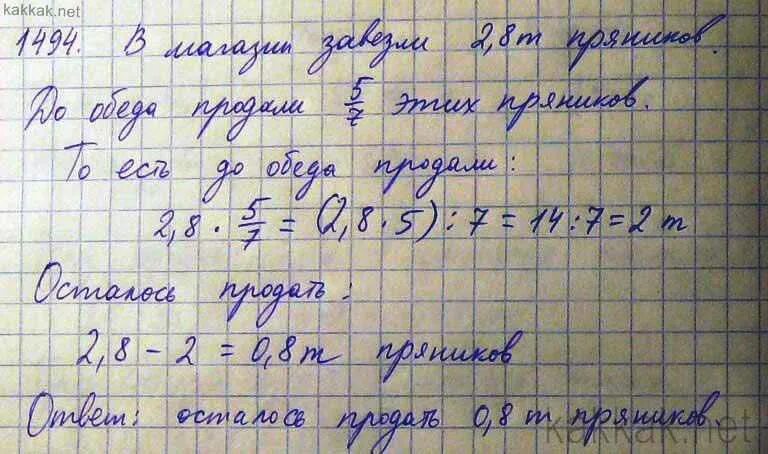 kakkak.net
1494. В магазин завезли 2,8т пряников.
До обеда продали 5/7 этих пряников.
То есть до обеда продали:
2,8 · 5/7 = (2,8 · 5) : 7 = 14 : 7 = 2 т
Осталось продать:
2,8 - 2 = 0,8т пряников
Ответ: осталось продать 0,8 т пряников.
kakkak.net